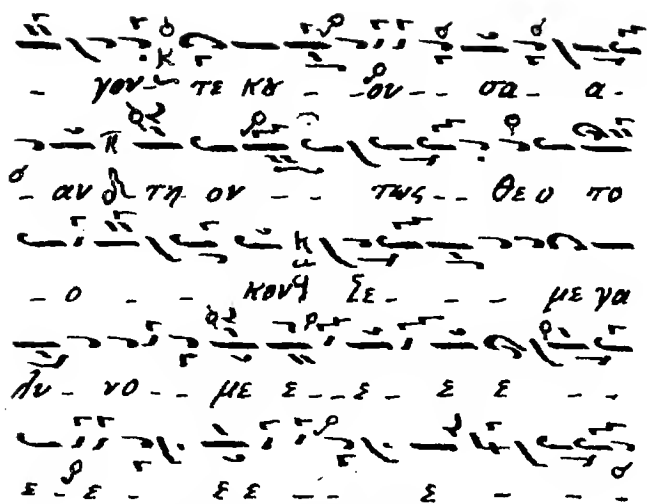 - γον - τε κȣ - - ον - - σα - α -
- αν τη ον - - τως - - θεο το
- ο - - κον σε - - - με γα
λυ - νο - με ε - - ε - ε ε - -
ε - ε - ε ε - - ε - - -